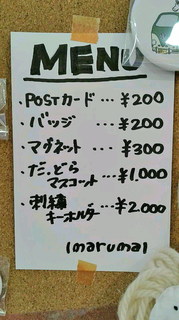 MENU
・POSTカード…¥200
・バッジ…¥200
・マグネット…¥300
・だ.どら
マスコット…¥1.000
・刺繍
キーホルダー…¥2.000
(maruma)